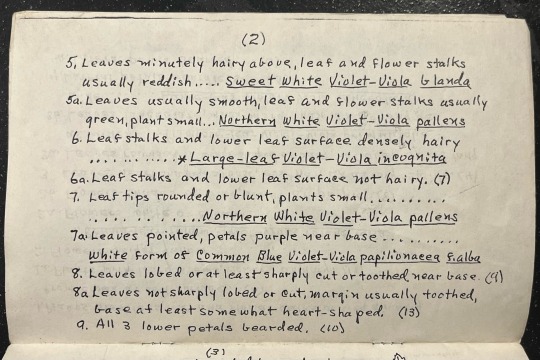 (2)
5, Leaves minutely hairy above, leaf and flower stalks
usually reddish..... Sweet White Violet-Viola blanda
5a. Leaves usually smooth, leaf and flower stalks usually
green, plant small... Northern White Violet-Viola pallens
6. Leaf stalks and lower leaf surface densely hairy
............*Large-leaf Violet-Viola incognita
6a. Leaf stalks and lower leaf surface not hairy. (7)
7. Leaf tips rounded or blunt, plants small..........
..............Northern White Violet-Viola pallens
7a. Leaves pointed, petals purple near base..........
White form of Common Blue Violet-Viola papilionacea f.alba
8. Leaves lobed or at least sharply cut or toothed near base. (9)
8a Leaves not sharply lobed or cut, margin usually toothed,
base at least somewhat heart-shaped. (13)
9. All 3 lower petals bearded. (10)
(3)